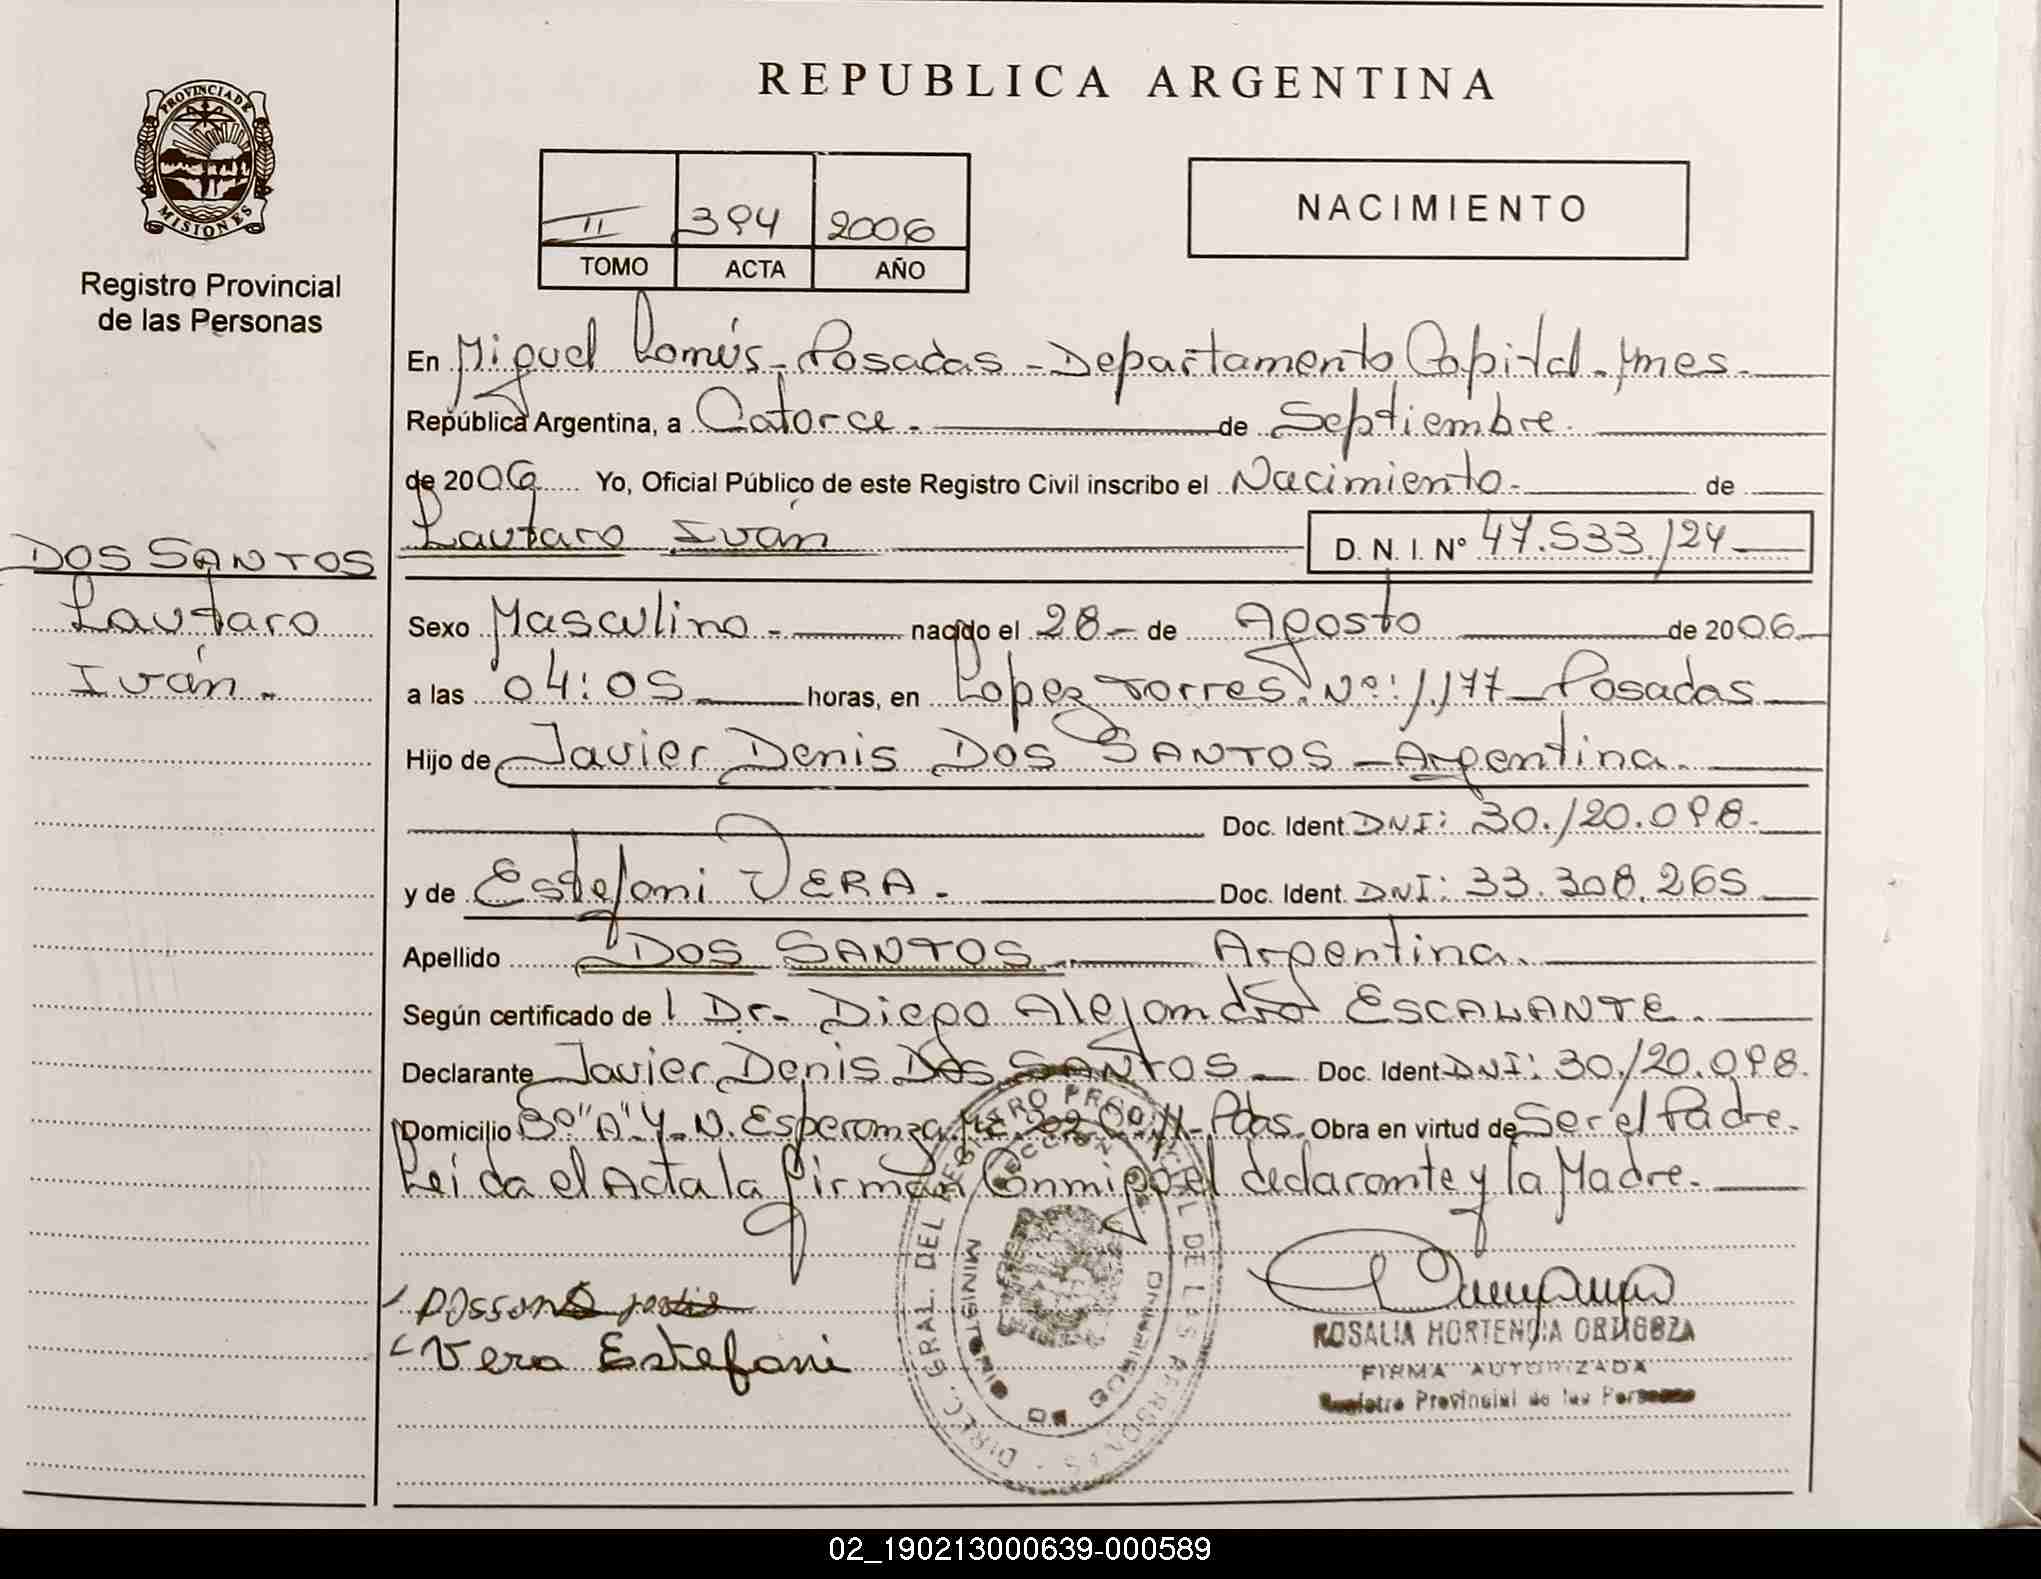 PROVINCIA DE
MISIONES
Registro Provincial
de las Personas
DOS SANTOS
Lautaro
Iván.
REPUBLICA ARGENTINA
II 394 2006
TOMO ACTA AÑO
NACIMIENTO
En Miguel Lanús - Posadas - Departamento Capital - Mnes.
República Argentina, a Catorce. de Septiembre.
de 2006 Yo, Oficial Público de este Registro Civil inscribo el Nacimiento. de
Lautaro Iván D. N. I. Nº 47.533.124
Sexo Masculino - nacido el 28 - de Agosto de 2006
a las 04:05 horas, en Lopez Torres. Nº: 1.177 - Posadas
Hijo de Javier Denis DOS SANTOS - Argentina.
Doc. Ident. DNI: 30.120.098.
y de Estefani VERA. Doc. Ident. DNI: 33.308.265
Apellido DOS SANTOS Argentina.
Según certificado de l Dr. Diego Alejandro ESCALANTE.
Declarante Javier Denis DOS SANTOS Doc. Ident DNI: 30.120.098.
Domicilio Bº "A" Y. N. Esperanza Pdas. Obra en virtud de Ser el Padre.
Leida el Acta la firman Conmigo el declarante y la Madre.
Vera Estefani
DIREC. GRAL. DEL REGISTRO PROVINCIAL DE LAS PERSONAS
MINISTERIO DE GOBIERNO
ROSALIA HORTENCIA ORTIGOZA
FIRMA AUTORIZADA
Registro Provincial de las Personas
02_190213000639-000589